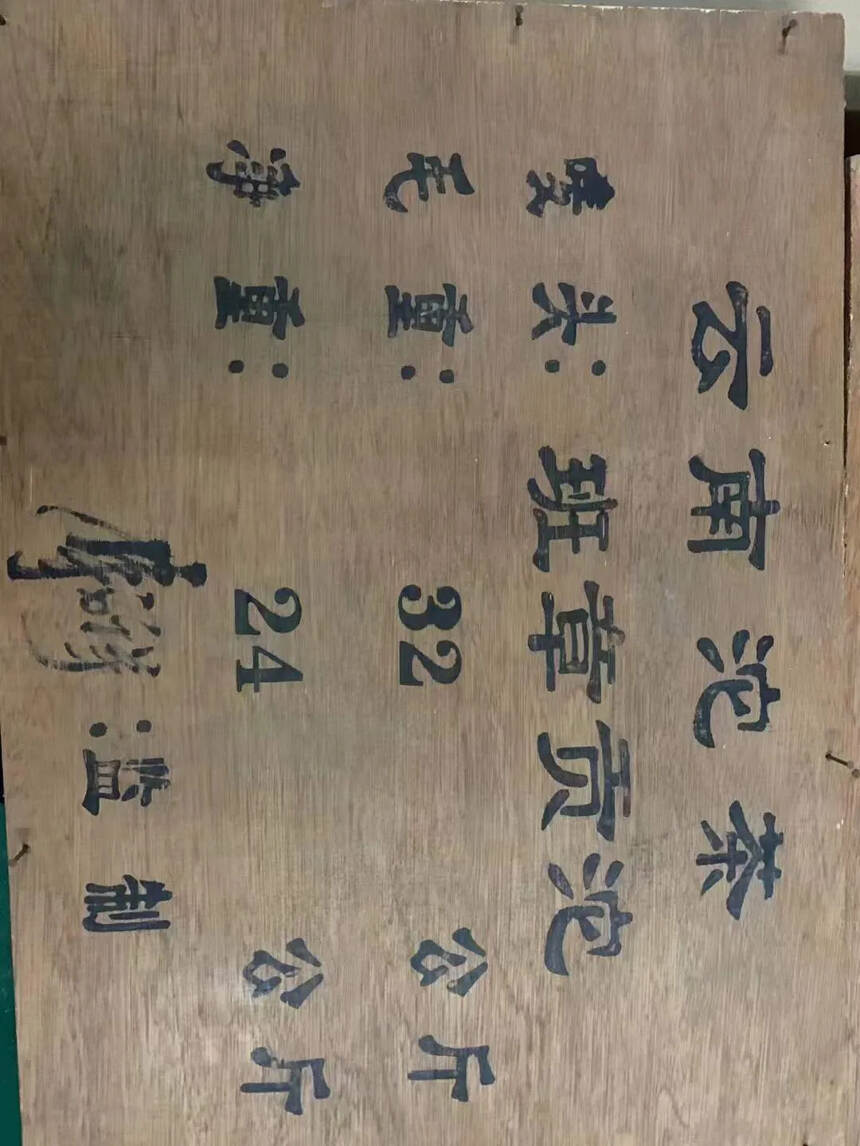 云南沱茶
唛头:班章贡沱
毛重: 32 公斤
净重: 24 公斤
:监制